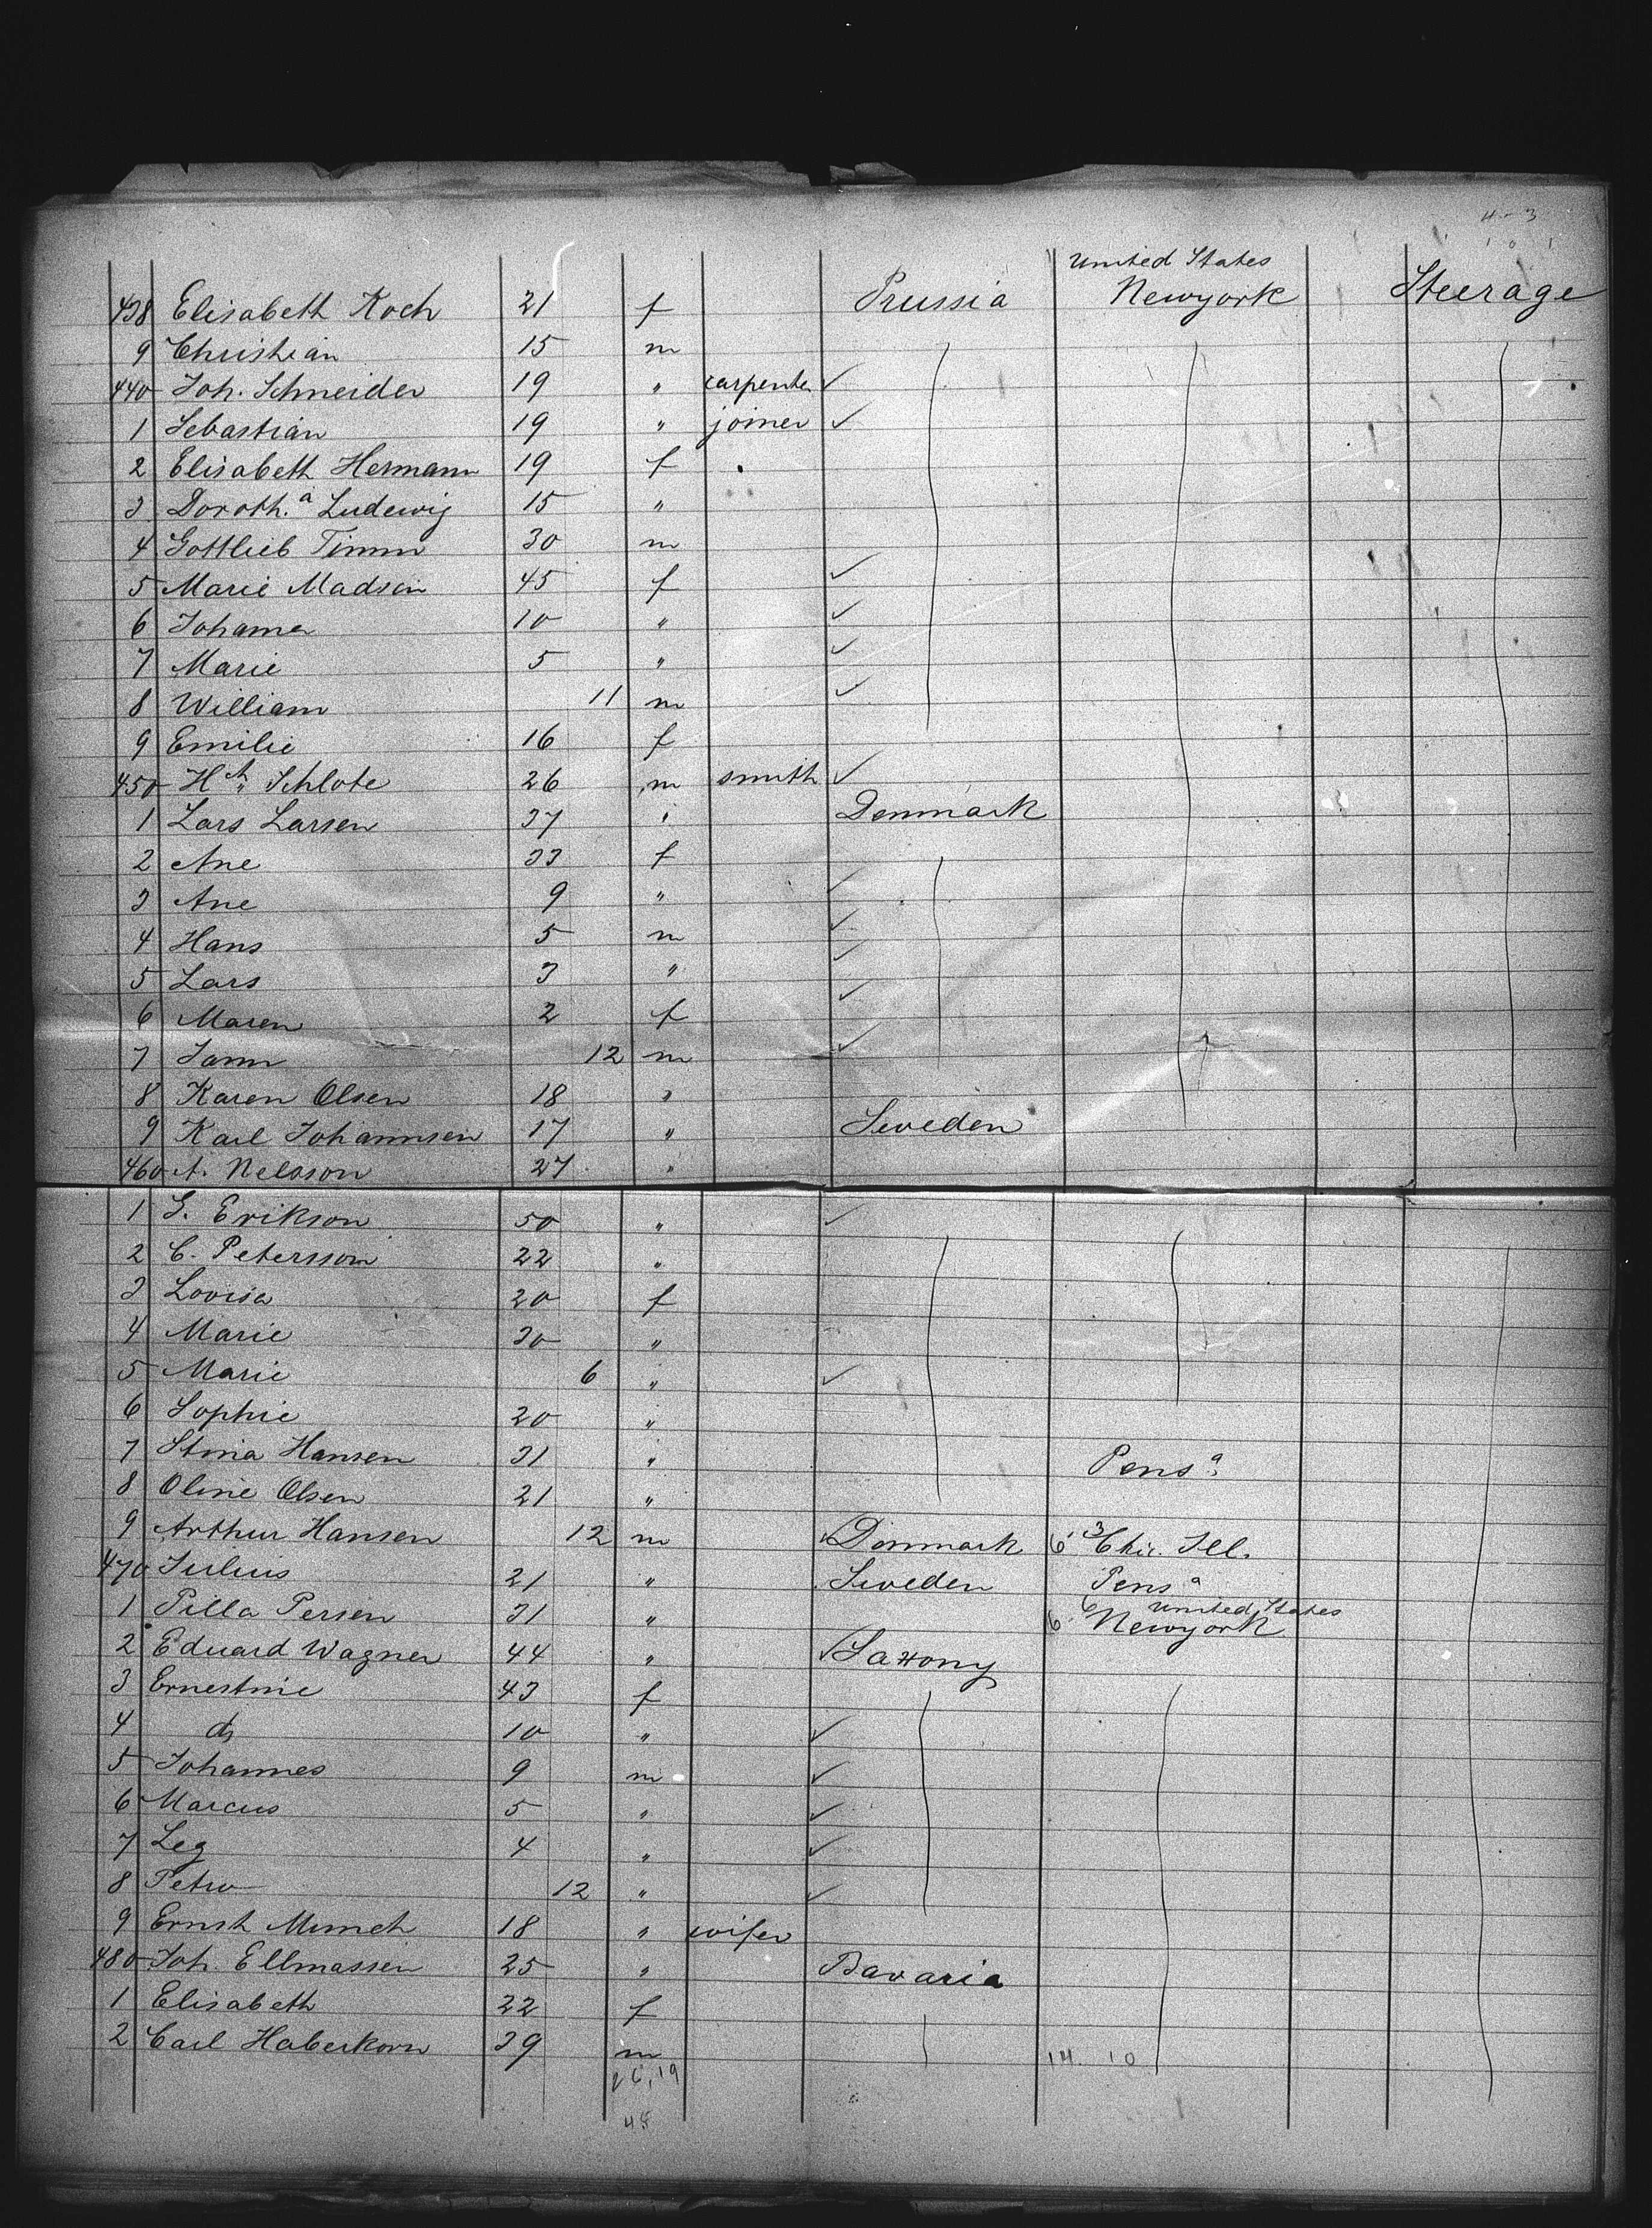 4-3
United States
438 Elisabeth Koch 21 f Prussia Newyork Steerage
9 Christian 15 m
440 Joh. Schneider 19 " carpenter ✓
1 Sebastian 19 " joiner ✓
2 Elisabeth Hermann 19 f
3 Doroth.a Ludewig 15 "
4 Gottlieb Timm 30 m
5 Marie Madsen 45 f ✓
6 Johanna 10 " ✓
7 Marie 5 " ✓
8 William 11 m ✓
9 Emilie 16 f
450 Hch Schlote 26 m smith ✓
1 Lars Larsen 37 " Denmark
2 Ane 33 f
3 Ane 9 " ✓
4 Hans 5 m ✓
5 Lars 3 " ✓
6 Maren 2 f ✓
7 12 m ✓
8 Karen Olsen 18 "
9 Karl Johannsen 17 " Sweden
460 A. Nelsson 27 "
1 S. Erikson 50 " ✓
2 C. Petersson 22 "
3 Lovisa 20 f
4 Marie 30 "
5 Marie 6 " ✓
6 Sophie 20 "
7 Stina Hansen 31 " Pensa.
8 Oline Olsen 21 "
9 Arthur Hansen 12 m ✓ Denmark 6 3 Chic. Ill.
470 Julius 21 " Sweden Pensa
1 Pilla Persen 31 " 6 United States
6 Newyork
2 Eduard Wagner 44 " ✓ Saxony
3 Ernestine 43 f
4 do 10 " ✓
5 Johannes 9 m ✓
6 Marcus 5 " ✓
7 Leg 4 " ✓
8 Petro 12 " ✓
9 Ernst Munch 18 "
480 Joh. Ellmassen 25 " Bavaria
1 Elisabeth 22 f
2 Carl Haberkorn 39 m
26,19 14. 10
45